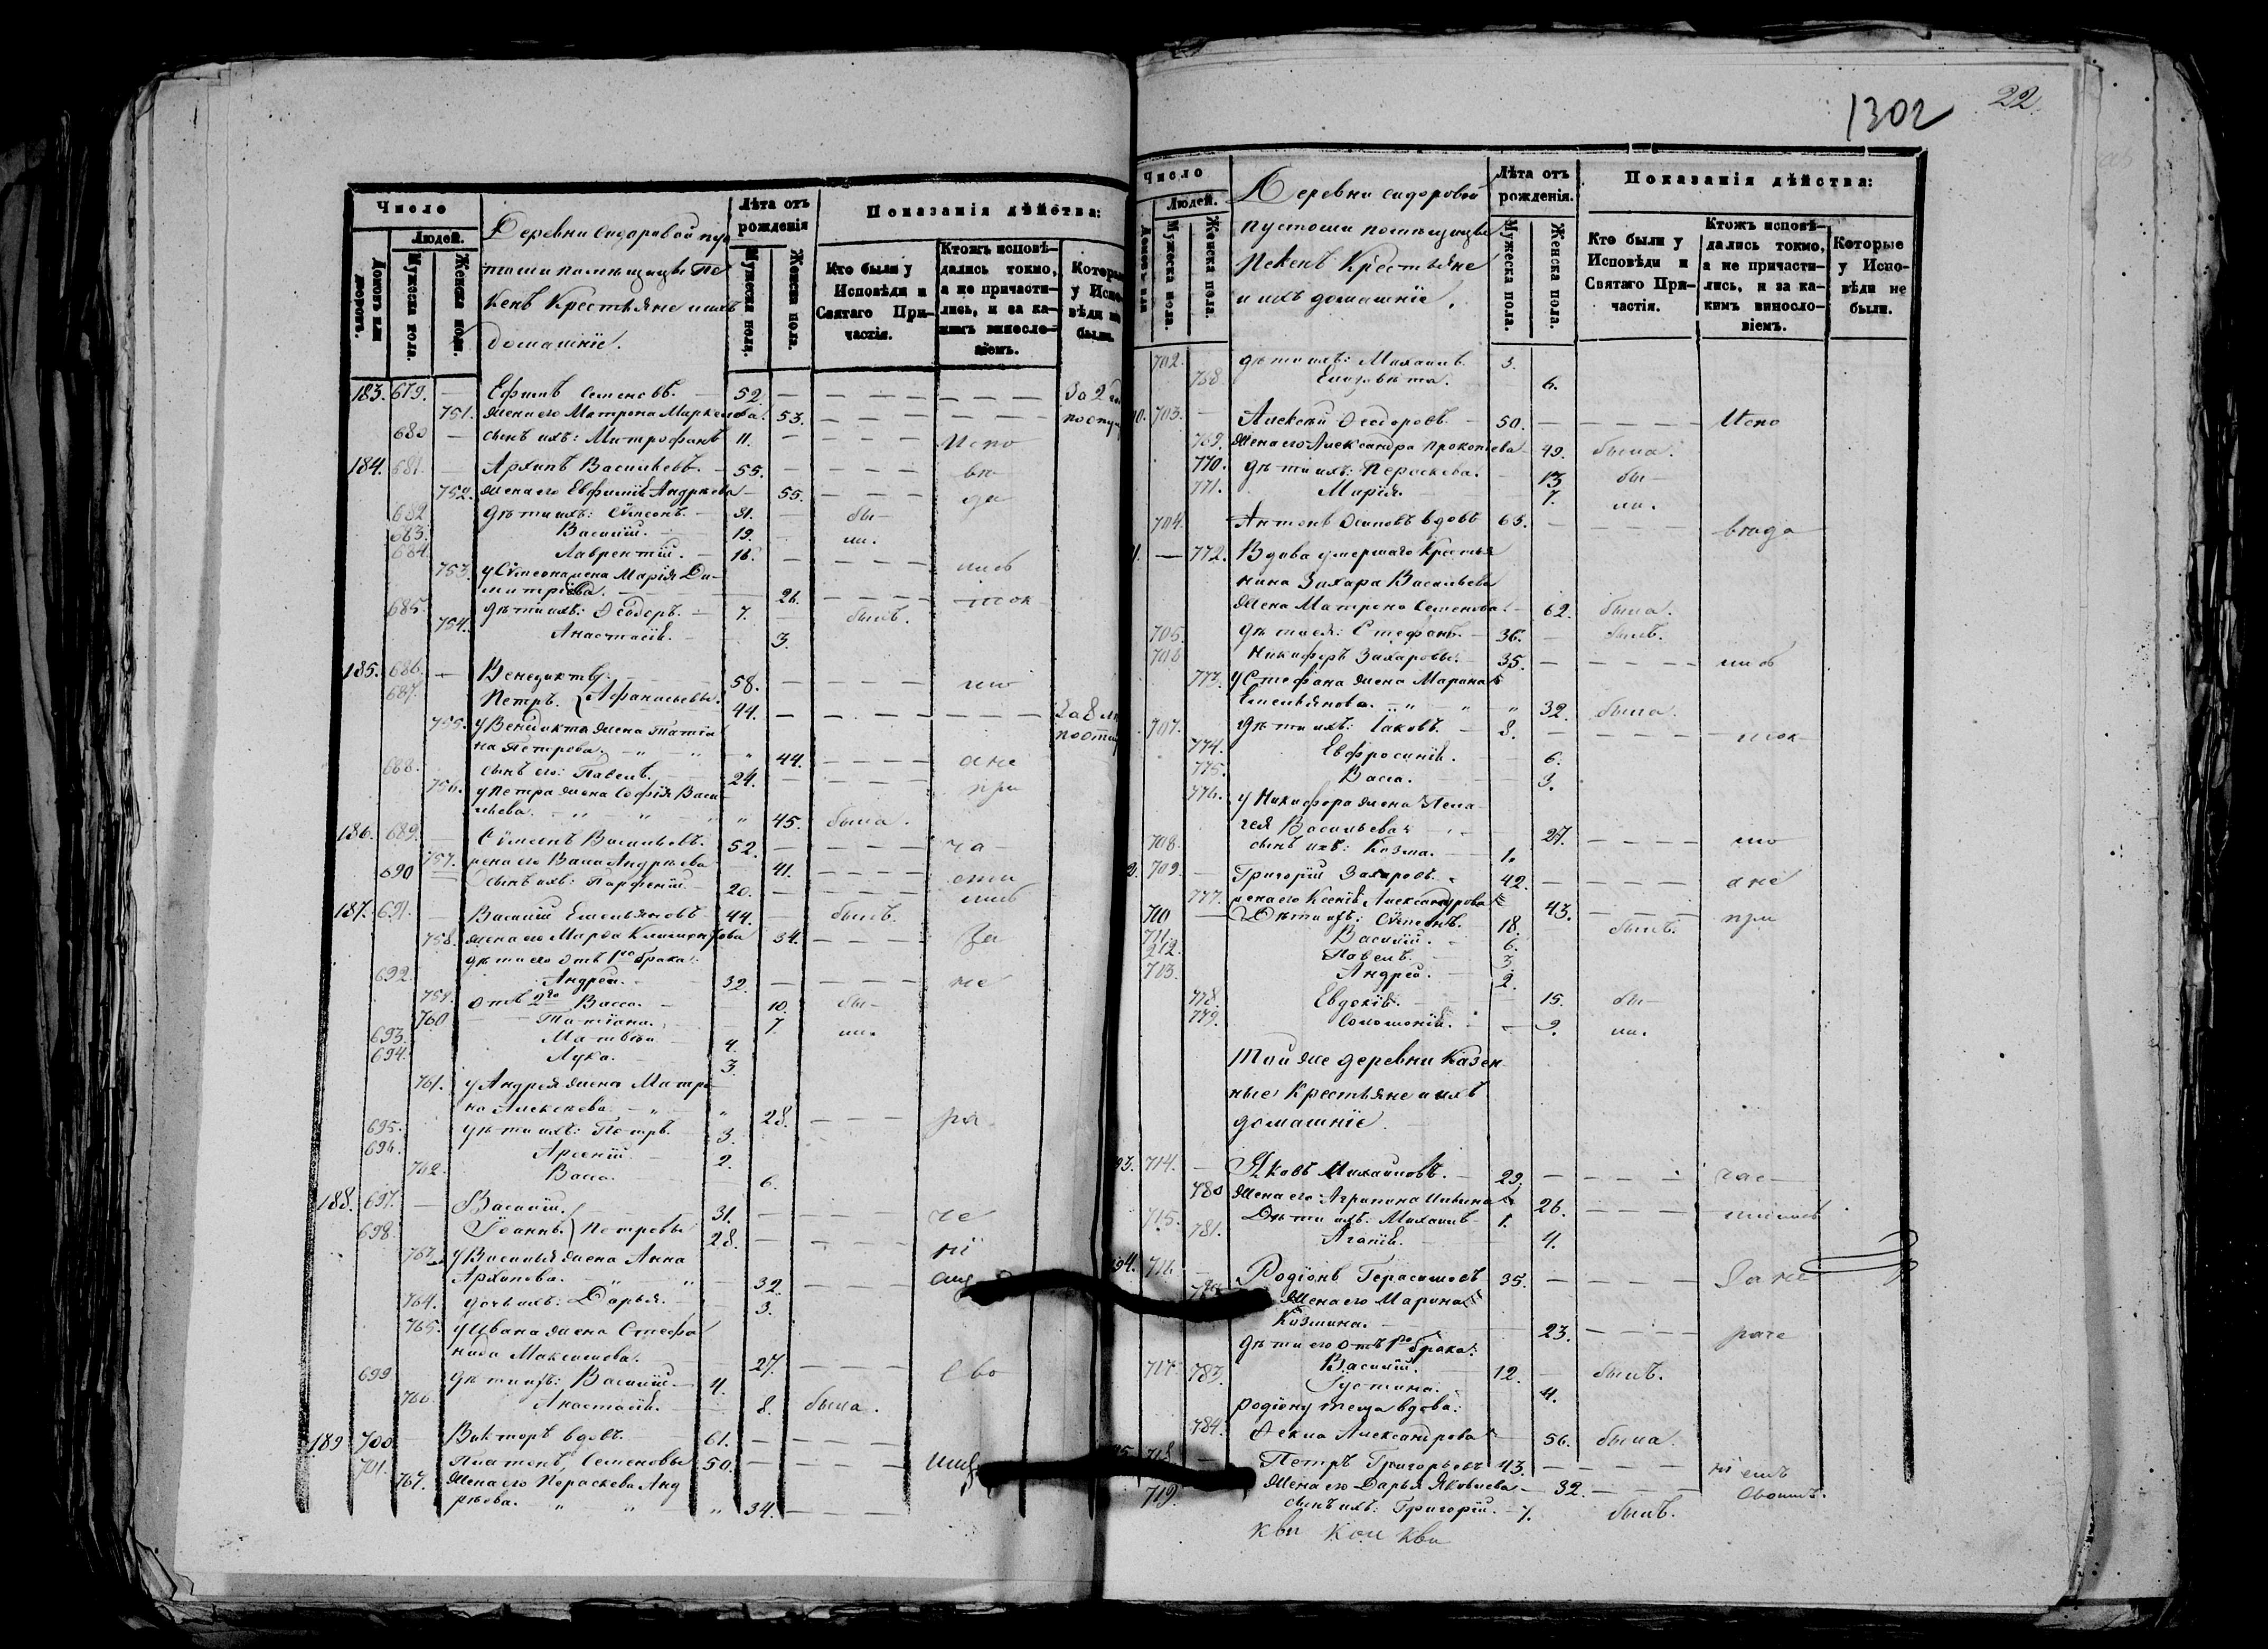 Число
Людей.
Домовъ или дворовъ.
Мужеска пола.
Женска пола.
Деревни Сидоровой пус
тоши помѣщицы Пе
кенъ Крестьяне и ихъ
домашніе.
Лѣта отъ рожденія
Мужеска пола.
Женска пола.
Показанія дѣйства:
Кто были у Исповѣди и Святаго Причастія.
Ктожъ исповѣдались токмо, а не причастились, и за какимъ винословіемъ.
Которые у Исповѣди не были.
183. 679. — Ефимъ Семеновъ. 52. За 2
751. Жена его Матрона Маркелова. 53.
680 — сынъ ихъ: Митрофанъ 11. Испо
184. 681. Архипъ Васильевъ. 55. вѣ
752. Жена его Евфимія Андреева 55. да
682 дѣти ихъ: Сѵмеонъ. 31. бы-
683. Василій. 19. ли.
684 Лаврентій. 16. лись
753. у Сѵмеона жена Марія Ди-
митріева. 26. ток
685. дѣти ихъ: Ѳеодоръ. 7. былъ.
754. Анастасія. 3.
185. 686. — Венедиктъ 58. мо
687. Петръ. Афанасьевы. 44. За 8
755. у Венедикта жена Татіа
на Петрова. 44. а не
688. сынъ его: Павелъ. 24. при
756. у Петра жена Софія Васи-
льева. 45. была.
186. 689. Сѵмеонъ Васильевъ. 52. ча
757. жена его Васса Андреева 41. сти
690 сынъ ихъ: Парфеній. 20. лись
187. 691. Василій Емельяновъ 44. былъ.
758. жена его Марѳа Климентова 34. За
дѣти его отъ 1го брака:
692. Андрей. 32. не
759. отъ 2го Васса. 10. бы-
760 Татіана. 7. ли.
693. Матвѣй 4.
694. Лука. 3.
761. у Андрея жена Матро
на Алексеева. 28. ра
695. дѣти ихъ: Петръ. 3.
696. Арсеній. 2.
762. Васса. 6.
188. 697. — Василій. 31. че
698. Іоаннъ. Петровы 28. ні
763. у Василья жена Анна
Архипова. 32.
764. дочь ихъ: Дарья. 3.
765. у Ивана жена Стефа
нида Максимова. 27. сво
699 дѣти ихъ: Василій. 4.
766. Анастасія. 8. была.
189 700 Викторъ вдовъ. 61.
701. Платонъ Семеновы 50.
767. Жена его Параскева Анд
реева. 34.
1302
22.
Число
Людей.
Домовъ или
Мужеска пола.
Женска пола.
Деревни Сидоровой
пустоши помѣщицы
Пекенъ Крестьяне
и ихъ домашніе.
Лѣта отъ рожденія.
Мужеска пола.
Женска пола.
Показанія дѣйства:
Кто были у Исповѣди и Святаго Причастія.
Ктожъ исповѣдались токмо, а не причастились, и за какимъ винословіемъ.
Которые у Исповѣди не были.
702. дѣти ихъ: Михаилъ 3.
768. Елизавета. 6.
703. Алексѣй Ѳеодоровъ. 50. Испо
769. Жена его Александра Прокопіева 49. была.
770. дѣти ихъ: Пераскева. 13 бы-
771. Марія. 7. ли.
704. Антонъ Осиповъ вдовъ 63. вѣда
— 772. Вдова умершаго Крестья
нина Захара Васильева
Жена Матрона Семенова. 62. была.
705. дѣти ея: Стефанъ. 36. былъ.
706 Никифоръ Захаровы. 35. лись
773. у Стефана жена Марина
Емельянова. 32. была.
707. дѣти ихъ: Іаковъ. 8. ток
774. Евфросинія. 6.
775. Васса. 3.
776. у Никифора жена Пела-
гея Васильева 27. мо
708. сынъ ихъ: Козма. 1.
709. Григорій Захаровъ. 42. а не
777. жена его Ксенія Александрова 43. при
710 Дѣти ихъ: Сѵмеонъ. 18. былъ.
711. Василій. 6.
712. Павелъ. 3
703. Андрей. 2.
778. Евдокія. 15. бы-
779. Соломонія. 9. ли.
Той же деревни Казен-
ные Крестьяне и ихъ
домашніе.
714. — Яковъ Михайловъ. 29. час
780 Жена его: Агрипина 26.
715. Дѣти ихъ: Михаилъ 1.
781. Агапія. 4.
716. Родіонъ Герасимовъ 35. За не
Жена его Марина
Козмина. 23. раче
дѣти его отъ 1го брака:
717 Василій. 12. былъ.
783. Іустина. 4.
Родіону теща вдова:
784. Ѳекла Александрова 56. была.
718 Петръ Григорьевъ 43. ніемъ
Жена его Дарья Яковлева 32. своимъ.
719. сынъ ихъ: Григорій. 7. былъ.